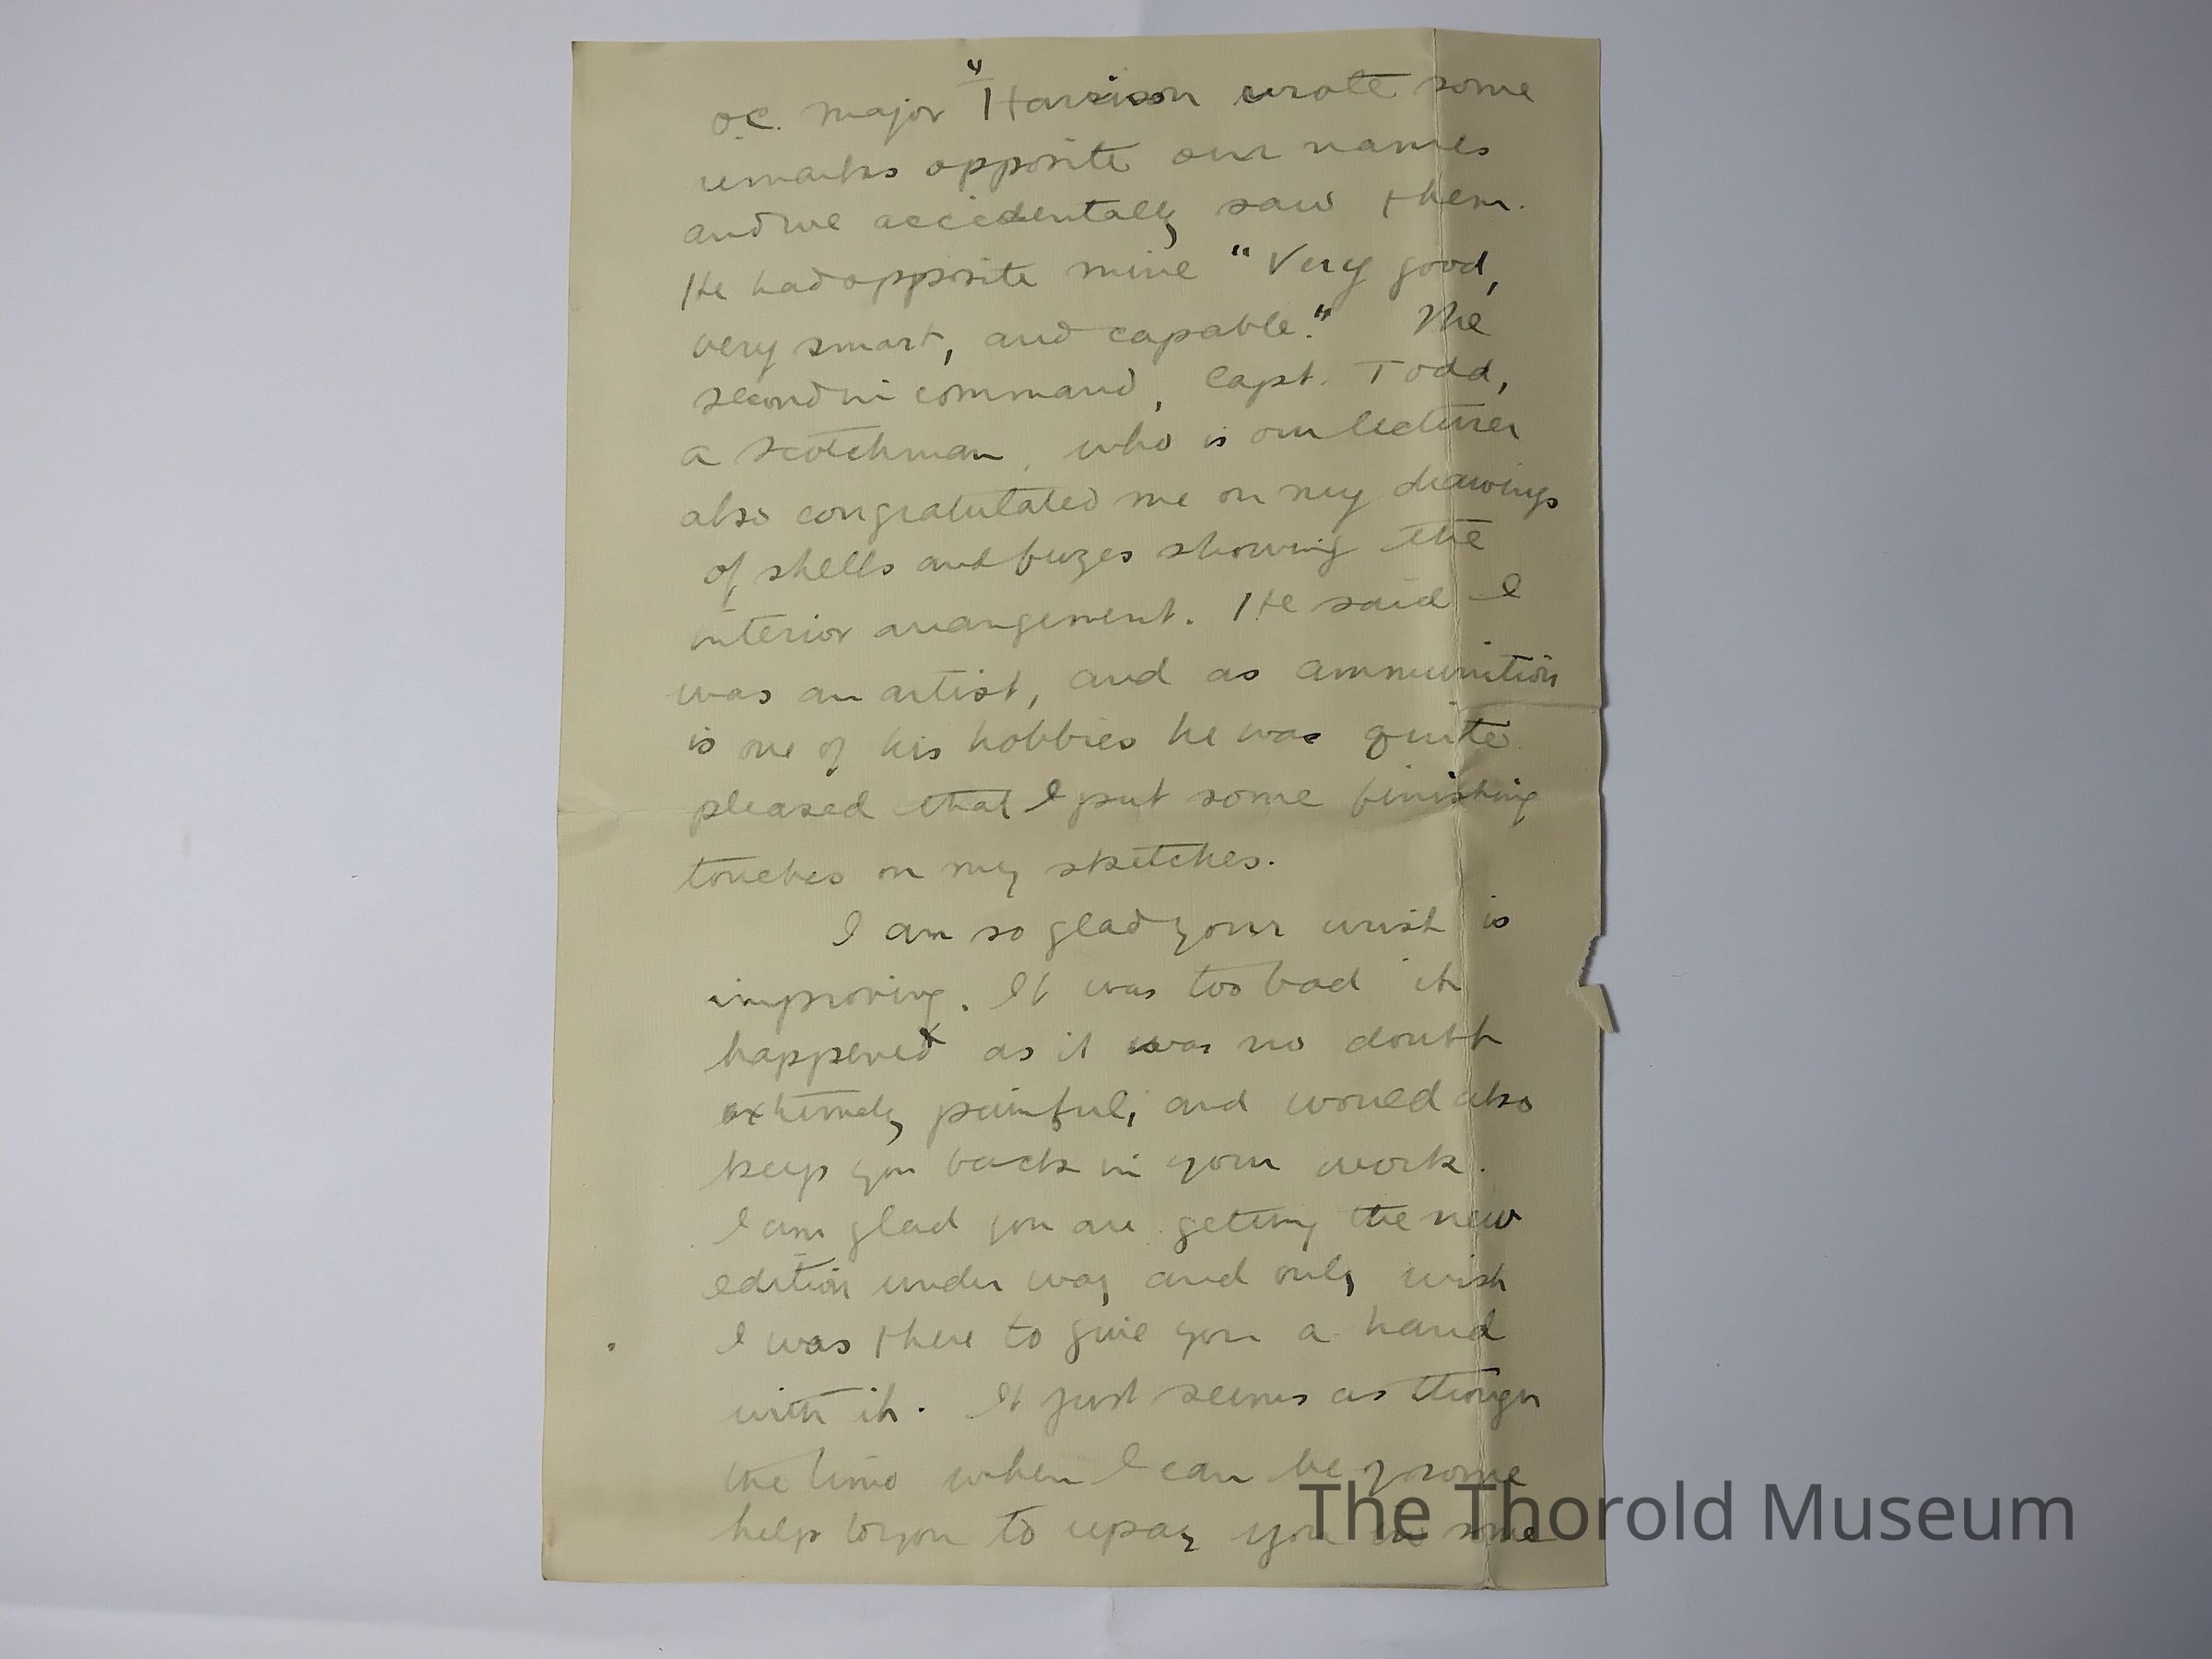 4
O.C. Major Harrison wrote some
remarks opposite our names
and we accidentally saw them.
He had opposite mine "Very good,
very smart, and capable." The
second in command, Capt. Todd,
a Scotchman, who is our lecturer
also congratulated me on my drawings
of shells and fuzes showing the
interior arrangement. He said I
was an artist, and as ammunition
is one of his hobbies he was quite
pleased that I put some finishing
touches on my sketches.
I am so glad your wrist is
improving. It was too bad it
happened as it was no doubt
extremely painful, and would also
keep you back in your work.
I am glad you are getting the new
edition under way and only wish
I was there to give you a hand
with it. It just seems as though
the time when I can be of some
help to you to repay you in some
The Thorold Museum